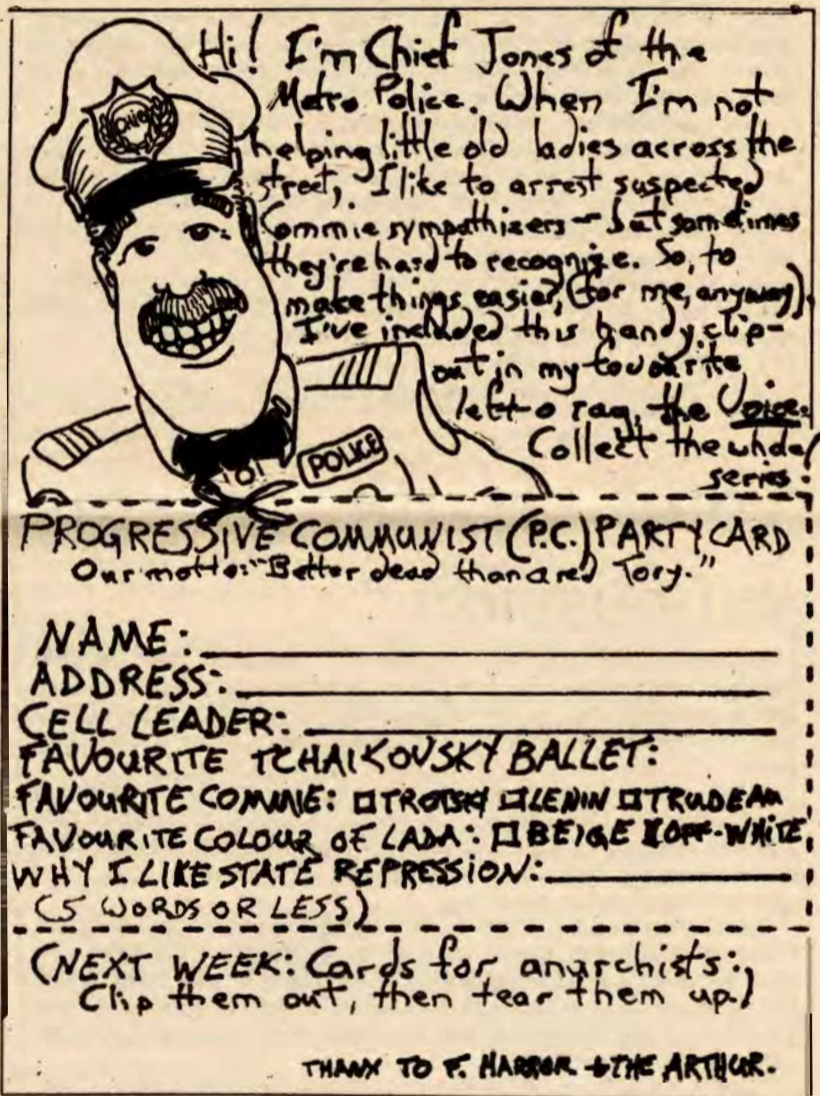 Hi! I'm Chief Jones of the
Metro Police. When I'm not
helping little old ladies across the
street, I like to arrest suspected
Commie sympathizers - but sometimes
they're hard to recognize. So, to
make things easier, (for me, anyway),
I've included this handy clip-
out in my favourite
left-o rag, the Voice.
Collect the whole
series.
POLICE
PROGRESSIVE COMMUNIST (P.C.) PARTY CARD
Our motto: "Better dead than a red Tory."
NAME:
ADDRESS:
CELL LEADER:
FAVOURITE TCHAIKOVSKY BALLET:
FAVOURITE COMMIE: □ TROTSKY □ LENIN □ TRUDEAU
FAVOURITE COLOUR OF LADA: □ BEIGE □ OFF-WHITE
WHY I LIKE STATE REPRESSION:
(5 WORDS OR LESS)
(NEXT WEEK: Cards for anarchists:
Clip them out, then tear them up.)
THANX TO F. + THE ARTHUR.